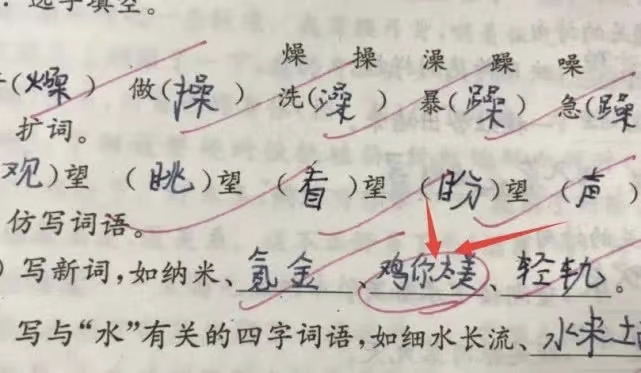 选字填空。
燥 操 澡 躁 噪
(燥) 做(操) 洗(澡) 暴(躁) 急(躁
扩词。
观)望 (眺)望 (看)望 (盼)望 (声)
仿写词语。
)写新词,如纳米、氪金、鸡你太美、轻轨。
写与“水”有关的四字词语,如细水长流、水来土